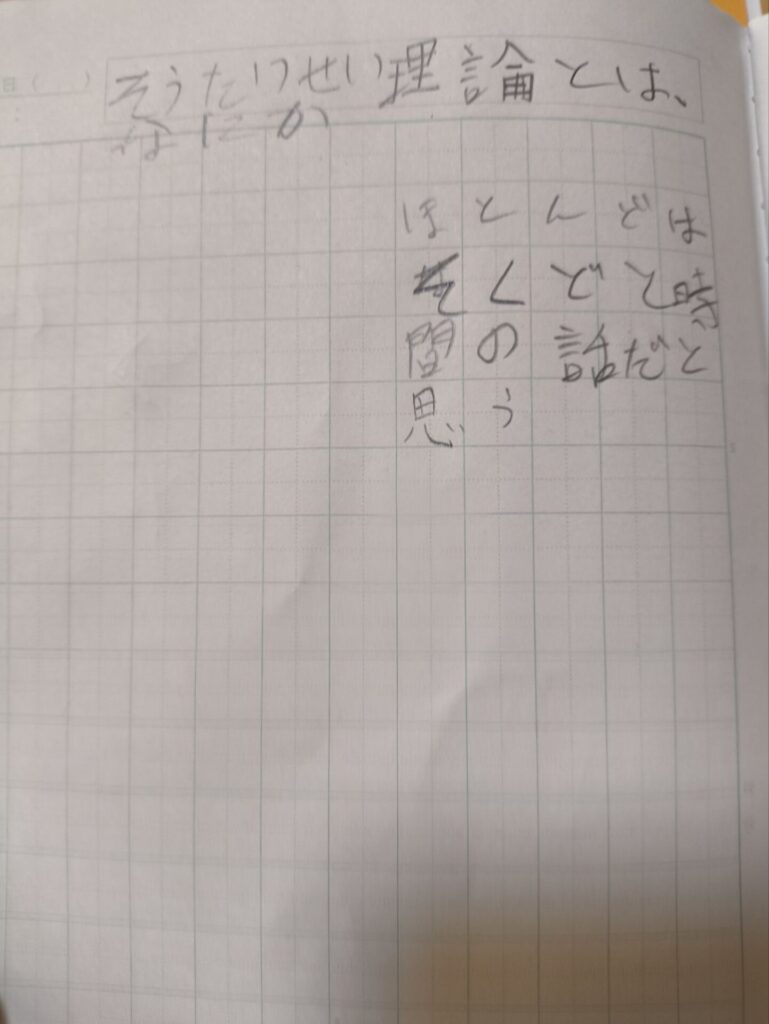 日（　）
そうたいせい理論とは、
なにか
ほとんどは
そくどと時
間の話だと
思う